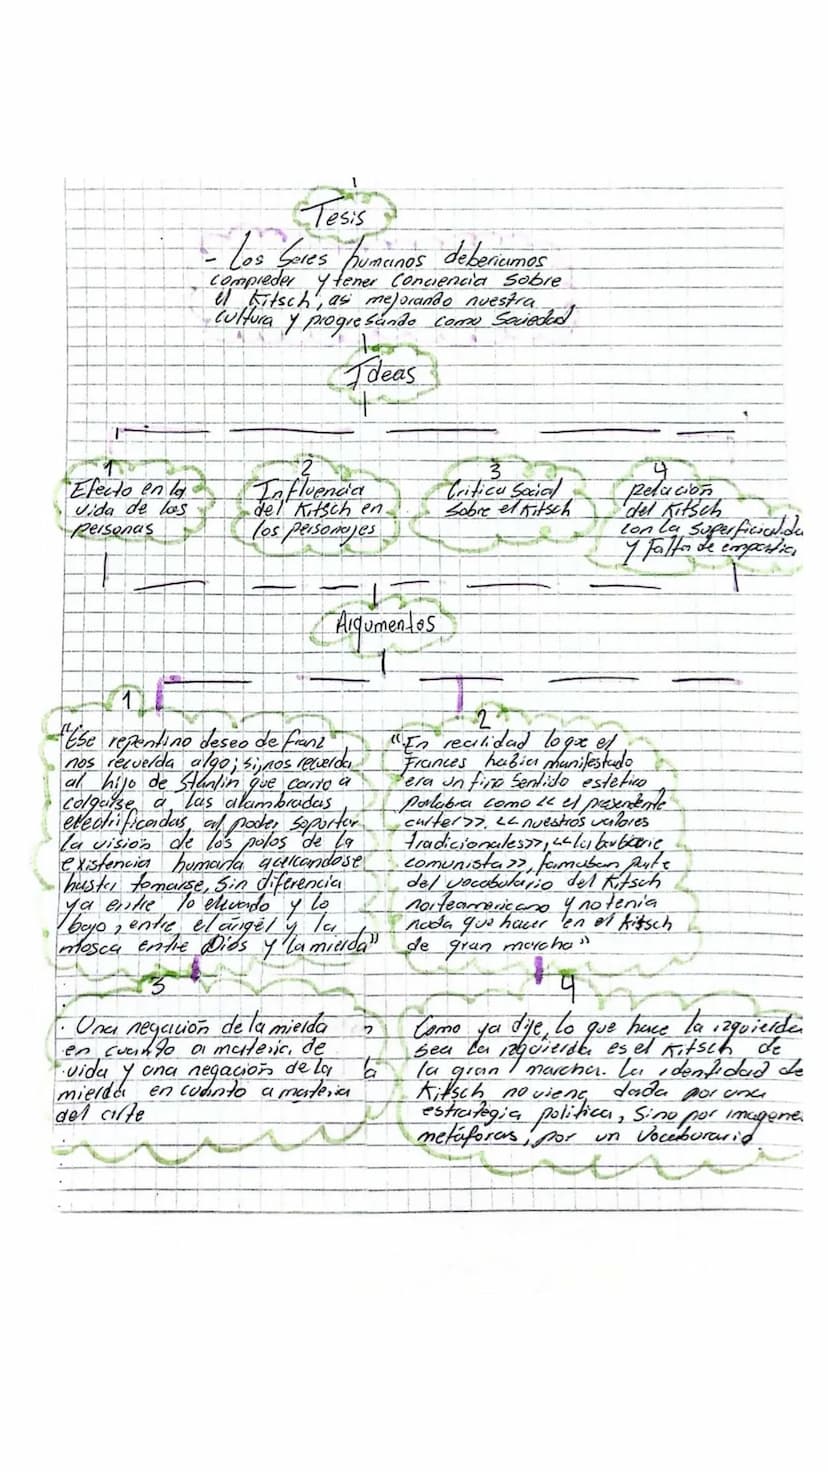 Tesis
- Los Seres humanos deberiamos
compreder y tener Conciencia Sobre
el Kitsch, asi mejorando nuestra
cultura y progresando como Sociedad
Ideas
1
Efecto en la
vida de las
personas
2
Influencia
del Kitsch en
los personajes
3
Critica Social
sobre el Kitsch
4
Relación
del Kitsch
con la superficialida
y falta de empatia
Argumentos
1
"Ese repentino deseo de franz
nos recuerda algo; si, nos recuerda
al hijo de Stanlin que corrio a
colgarse a las alambradas
electrificadas al poder soportar
la visión de los polos de la
existencia humana acercandose
hasta tomarse, Sin diferencia
ya entre lo elevado y lo
bajo, entre el ángel y la
mosca entre Dios y la mierda"
2
"En realidad lo que el
Frances habia manifestado
era un fino Sentido estetico
palabra como << el
>>. << nuestros valores
tradicionales>>, <<la barbarie
comunista>>, parte
del vocabulario del Kitsch
norteamericano y no tenia
nada que hacer en el kitsch
de gran marcha"
3
. Una negación de la mierda
en cuanto a materia de
vida y una negación de la
mierda en cuanto a materia
del arte
4
Como ya dije, lo que hace la izquierda
sea la izquierda es el Kitsch de
la gran marcha. La identidad de
Kitsch no viene dada por una
estrategia politica, Sino por imagene
metáforas, por un Vocaburario